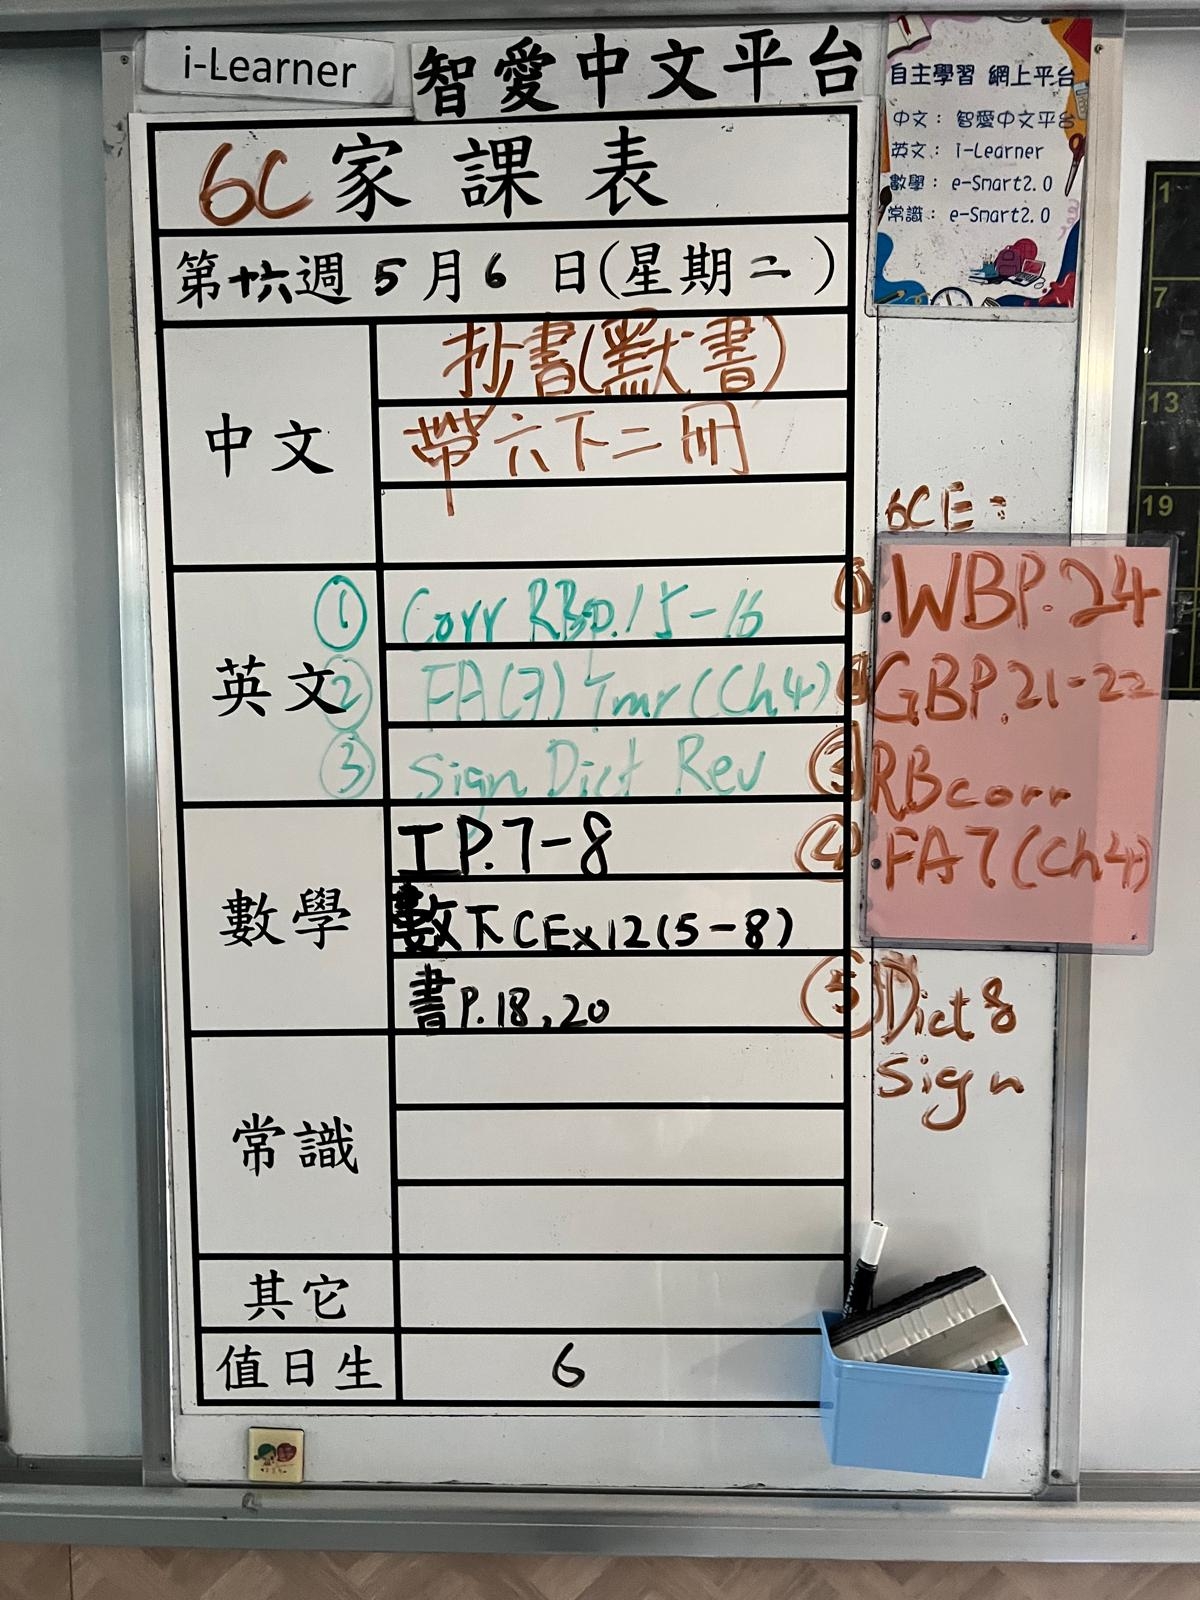 i-Learner
智愛中文平台
自主學習 網上平台
中文： 智愛中文平台
英文： i-Learner
數學： e-Smart2.0
常識： e-Smart2.0
6C 家課表
第十六週 5月6日(星期二)
中文
抄書(默書)
帶六下二冊
英文
① Corr RBp.15-16
② FA(7) Tmr (Ch4)
③ Sign Dict Rev
數學
工P.7-8
數下CEx12(5-8)
書P.18,20
常識
其它
值日生
6
6CE:
① WBP.24
② GBP.21-22
③ RBcorr
④ FA7(Ch4)
⑤ Dict 8
Sign
1
7
13
19